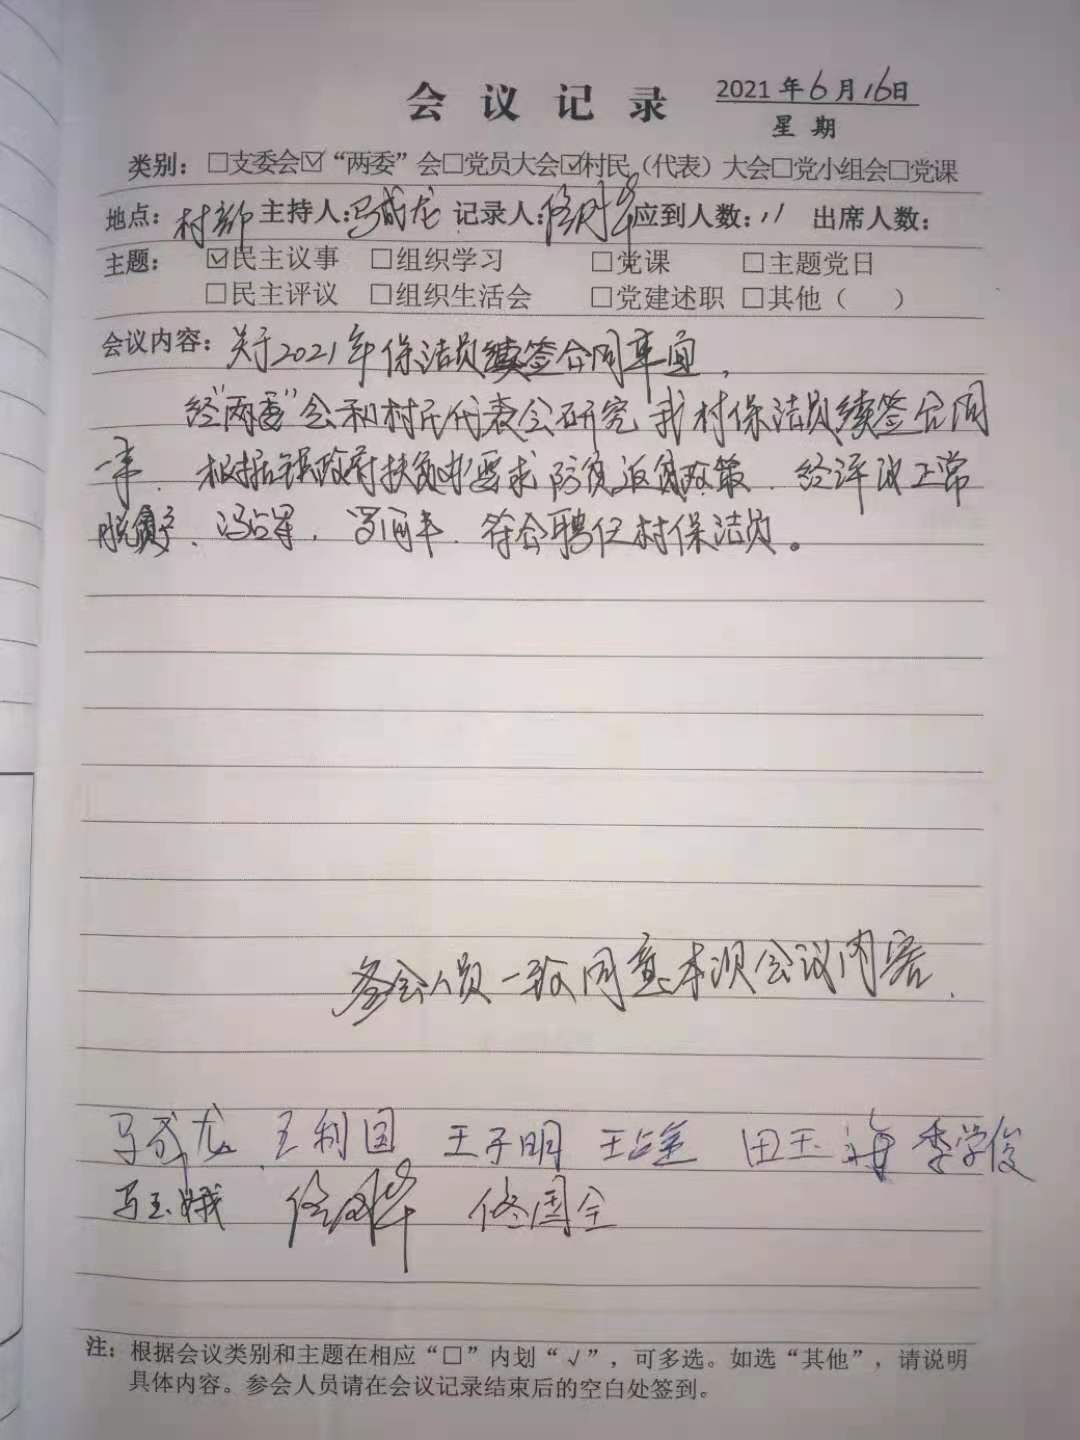 会议记录 2021年6月16日
星期
类别：□支委会☑“两委”会□党员大会☑村民（代表）大会□党小组会□党课
地点：村部 主持人：马成龙 记录人： 应到人数：11 出席人数：
主题：☑民主议事 □组织学习 □党课 □主题党日
□民主评议 □组织生活会 □党建述职 □其他（ ）
会议内容：关于2021年保洁员续签合同事宜，
经“两委”会和村民代表会研究，我村保洁员续签合同
一事，根据镇政府扶贫办要求防贫返贫政策，经评议正常
脱贫户、冯占军，罗 丰，符合聘任村保洁员。
参会人员一致同意本次会议内容．
马成龙 王利国 王子明 王占金 田玉海 李学俊
马玉娥 佟国全
注：根据会议类别和主题在相应“□”内划“√”，可多选。如选“其他”，请说明
具体内容。参会人员请在会议记录结束后的空白处签到。